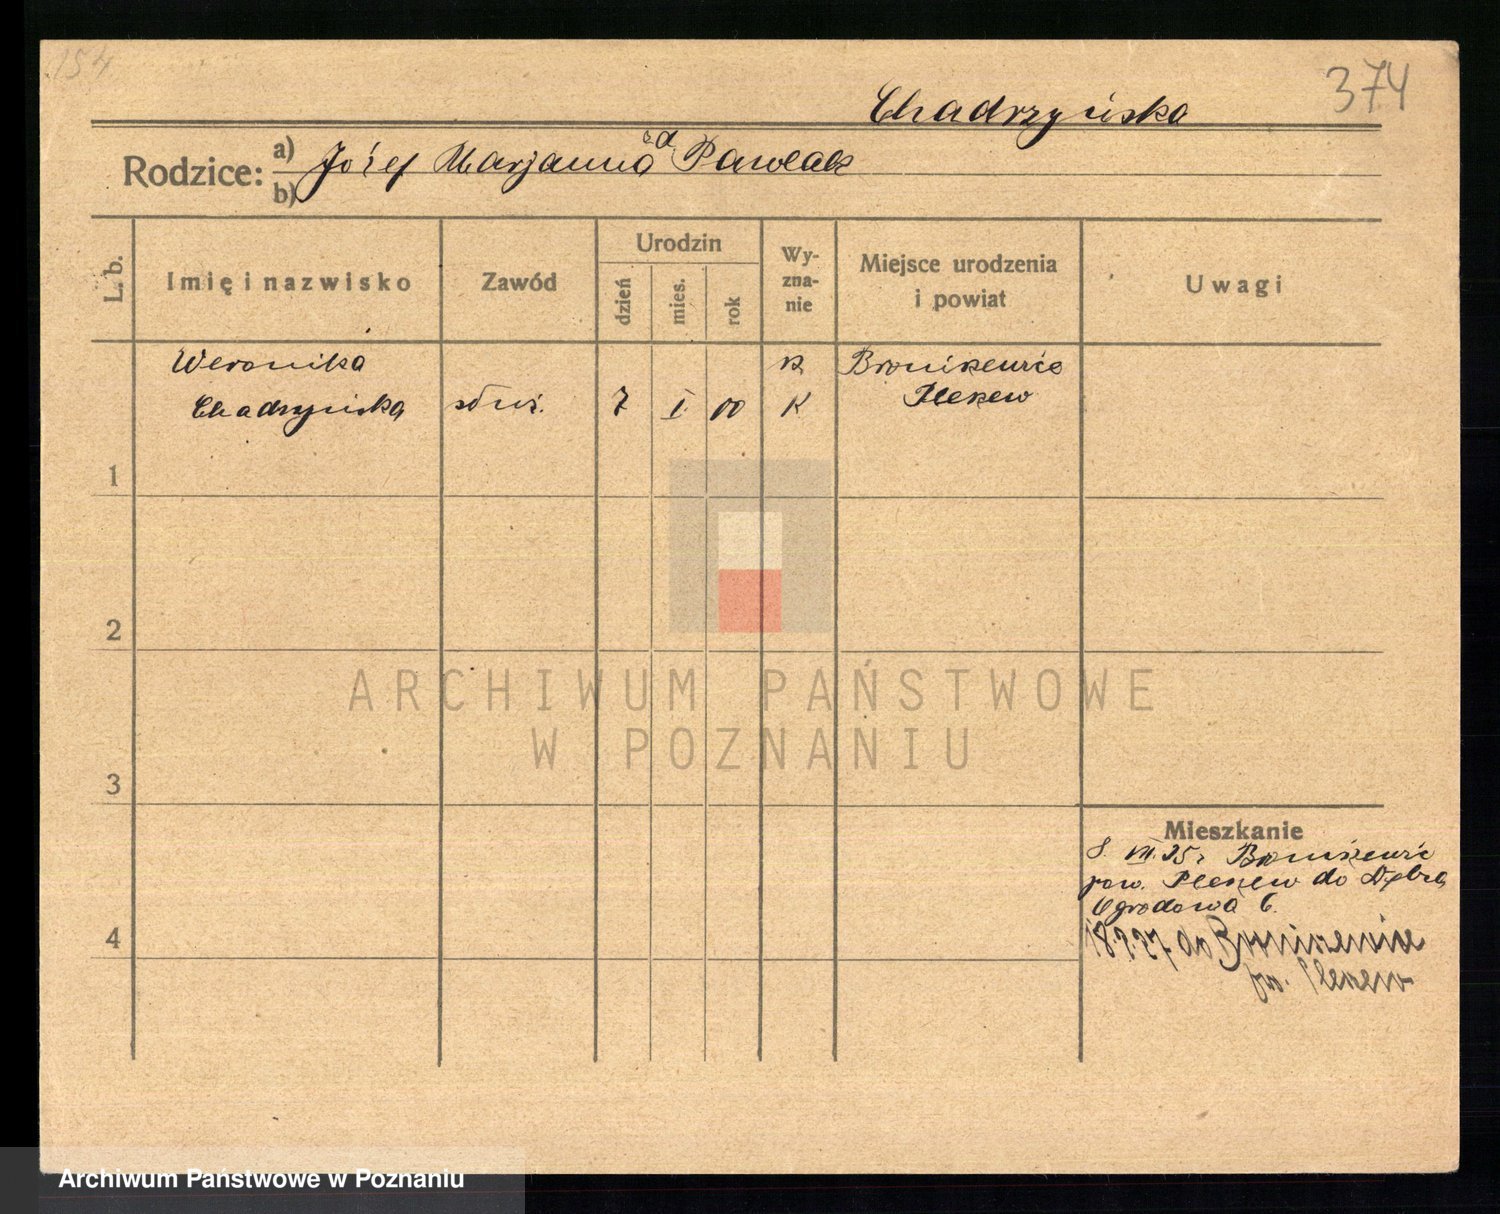 154
374
Chadrzyńska
Rodzice: a) b) Józef Marjanna zd Pawlak
L. b.
Imię i nazwisko
Zawód
Urodzin
dzień
mies.
rok
Wy-
zna-
nie
Miejsce urodzenia
i powiat
Uwagi
Weronika
Chadrzyńska
7
I
00
K
Broniszewice
Pleszew
1
2
3
4
Mieszkanie
8. VII. 25 r Broniszewic
pow. Pleszew do Dębca
Ogrodowa 6.
do Broniszewice
pow. Pleszew
ARCHIWUM PAŃSTWOWE
W POZNANIU
Archiwum Państwowe w Poznaniu